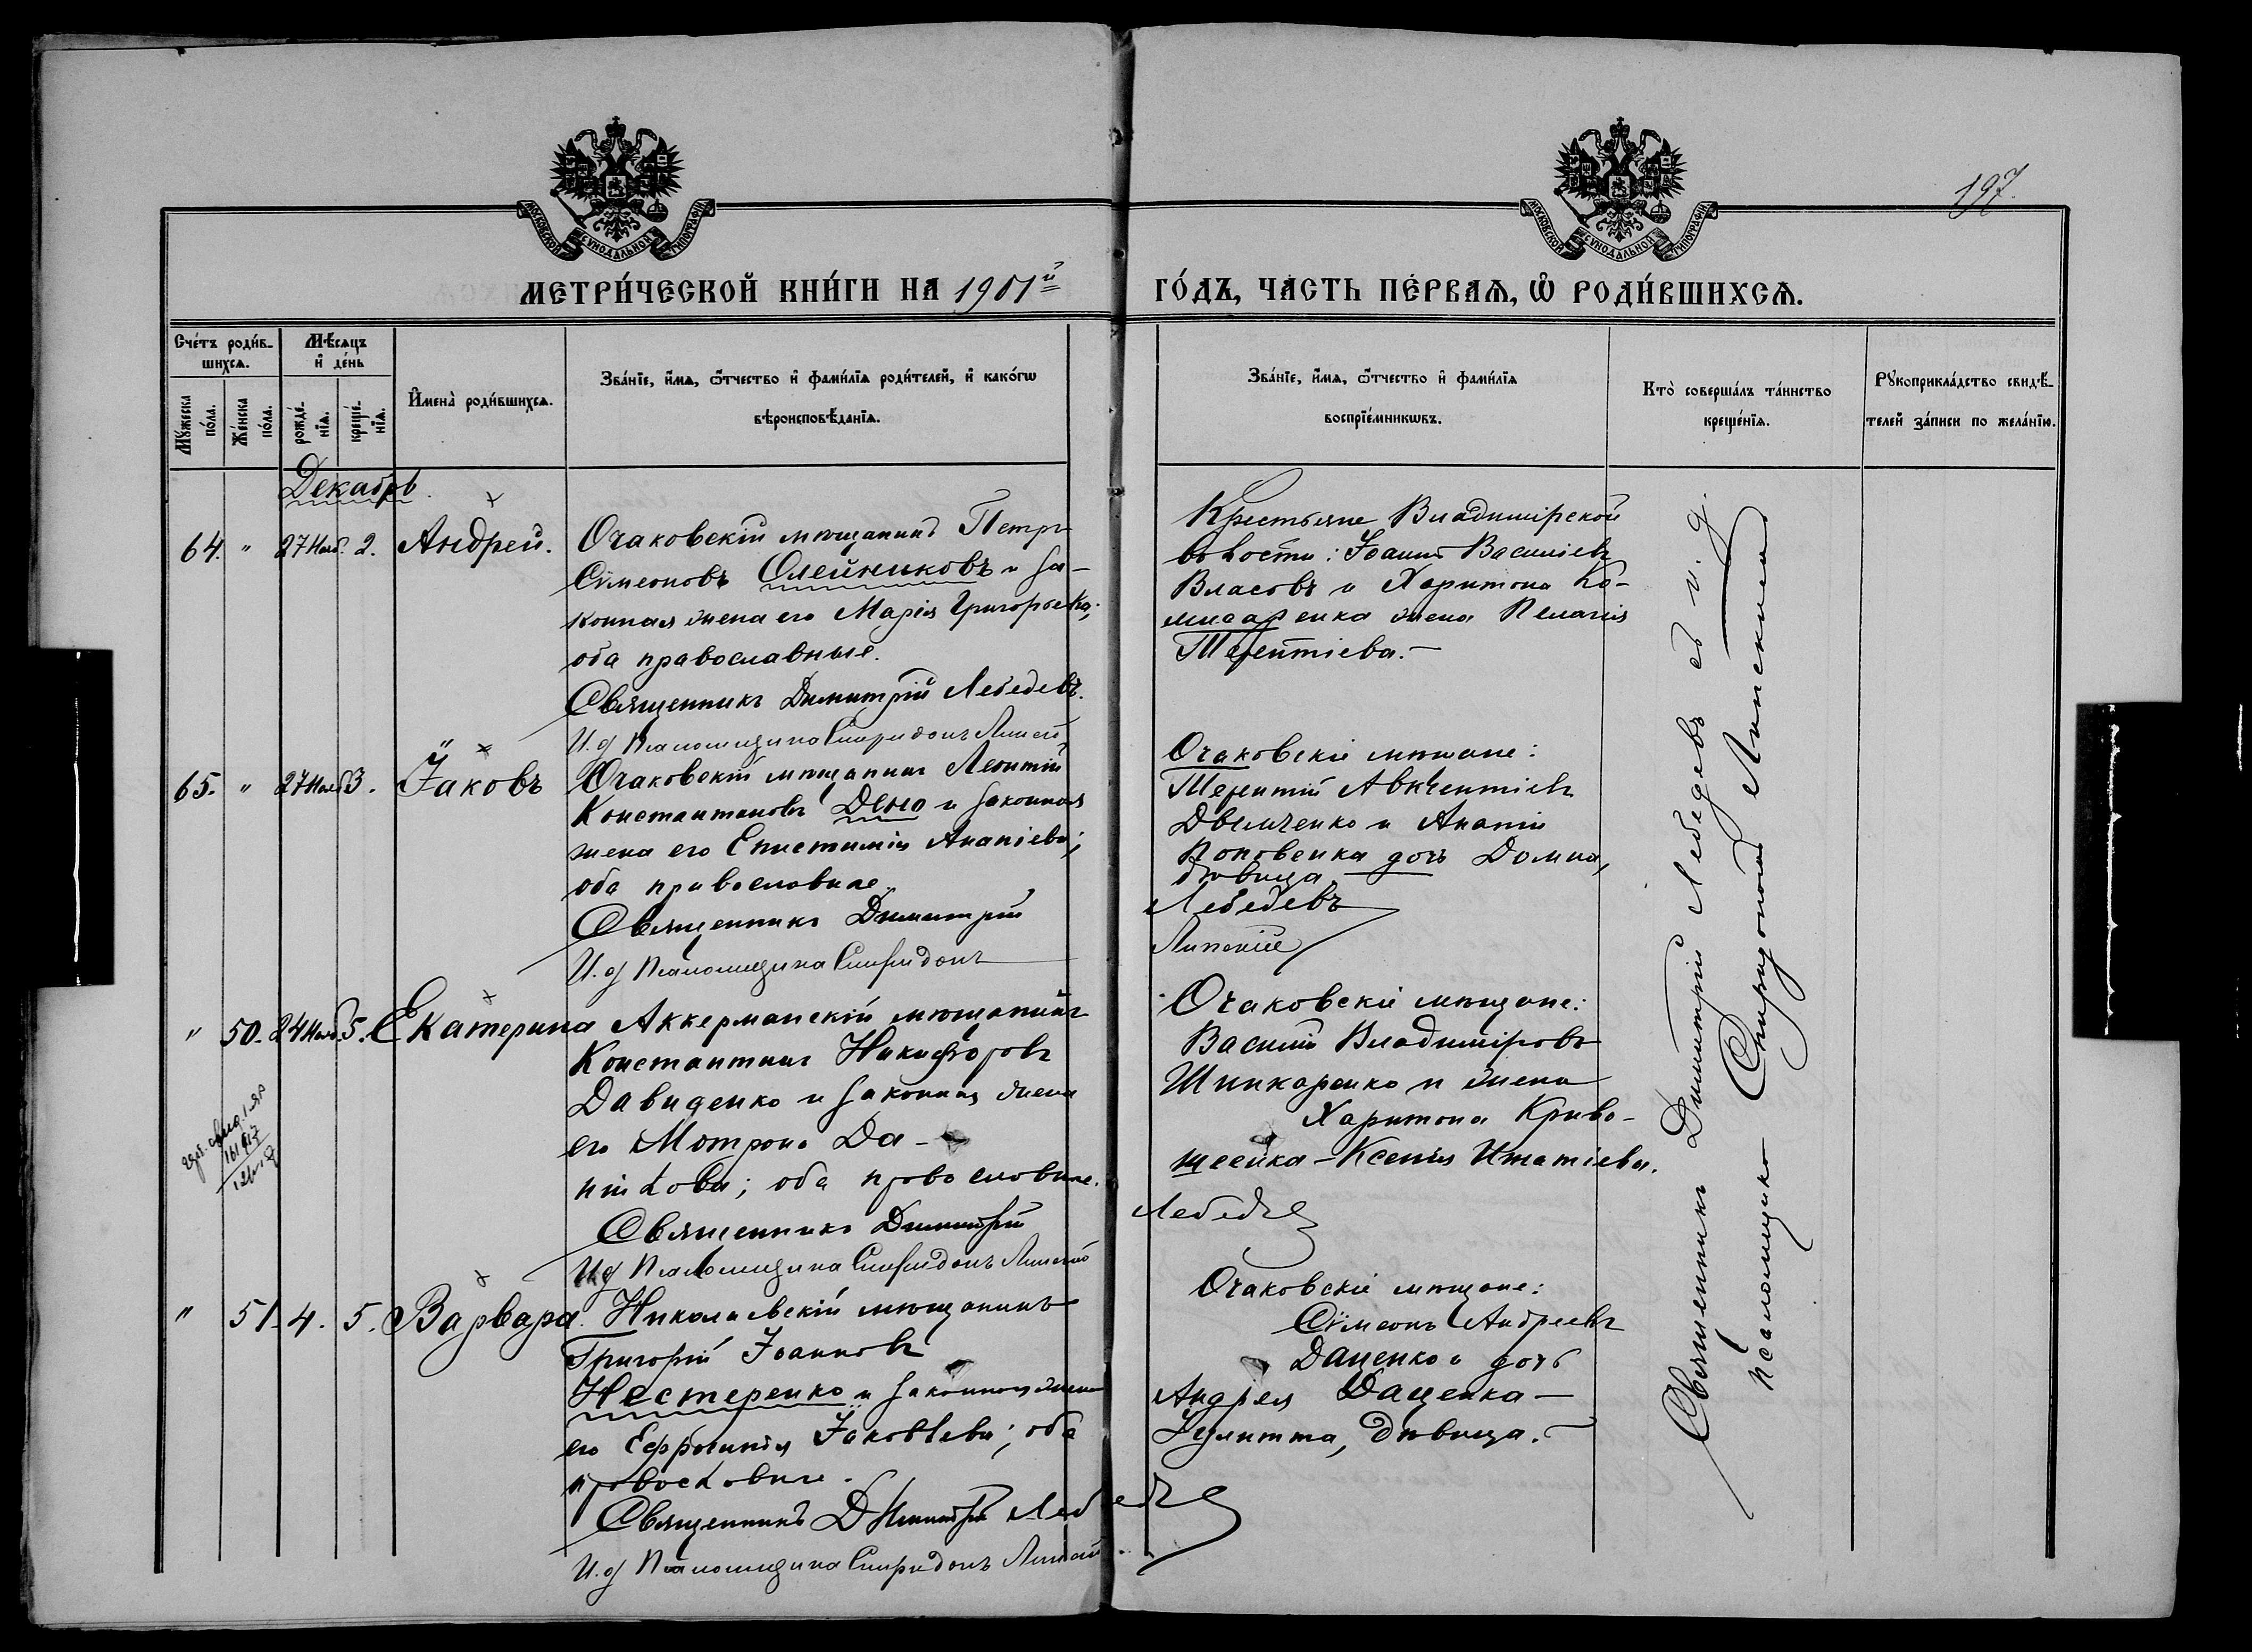 МОСКОВСКОЙ СѴНОДАЛЬНОЙ ТИПОГРАФІИ
МОСКОВСКОЙ СѴНОДАЛЬНОЙ ТИПОГРАФІИ
197.
МЕТРИ́ЧЕСКОЙ КНИ́ГИ НА 1901й ГО́ДЪ, ЧАСТЬ ПЕ́РВАѦ, Ѡ РОДИ́ВШИХСѦ.
Сче́тъ роди́в-
шихсѧ.
Мꙋ́жеска по́ла.
Же́нска по́ла.
Мѣ́сѧцъ
и де́нь
рожде́-
нїѧ.
креще́-
нїѧ.
И҆мена̀ роди́вшихсѧ.
Зва́нїе, и҆́мѧ, ѻ҆́тчество и҆ фами́лїѧ роди́телей, и҆ како́гѡ
вѣроисповѣ́данїѧ.
Зва́нїе, и҆́мѧ, ѻ҆́тчество и҆ фами́лїѧ
воспрїе́мникѡвъ.
Кто̀ соверша́лъ та́инство
креще́нїѧ.
Рꙋкоприкла́дство свидѣ́-
телей за́писи по жела́нїю.
Декабрь.
64. " 27 Нояб. 2. Андрей.
Очаковскій мѣщанинъ Петръ
Сѵмеоновъ Олейниковъ и за-
конная жена его Марія Григорьева;
оба православные.
Священникъ Димитрій Лебедевъ.
И. д Псаломщика Спиридонъ Липскій
Крестьяне Владимірской
волости: Іоаннъ Василіевъ
Власовъ и Харитона Ко-
мисаренка жена Пелагія
Терентіева.—
65. " 27 Нояб 3. Іаковъ
Очаковскій мѣщанинъ Леонтій
Константиновъ Дено и законная
жена его Епистимія Ананіева;
оба православные.
Священникъ Димитрій
И. д Псаломщика Спиридонъ
Очаковскіе мѣщане:
Терентій Авксентіевъ
Двимченко и Анатія
Поповенка дочь Домна,
дѣвица
Лебедевъ
Липскій
" 50. 24 Нояб. 5. Екатерина
Аккерманскій мѣщанинъ
Константинъ Никифоровъ
Давиденко и законная жена
его Мотрона Да-
ніилова; оба православные.
Священникъ Димитрій
И д Псаломщика Спиридонъ Липскій
Очаковскіе мѣщане:
Василій Владиміровъ
Шинкаренко и жена
Харитона Криво-
шейка - Ксенія Игнатіева.
Лебедевъ
" 51. 4. 5. Варвара.
Николаевскій мѣщанинъ
Григорій Іоанновъ
Нестеренко и законная жена
его Ефросинія Іаковлева; оба
православные.
Священникъ Димитрій Лебедевъ
И. д Псаломщика Спиридонъ Липскій
Очаковскіе мѣщане:
Сѵмеонъ Андреевъ
Даценко и дочь
Андрея Даценка —
Іулитта, дѣвица.—
Священникъ Димитрій Лебедевъ съ и. д.
псаломщика Спиридономъ Липскимъ